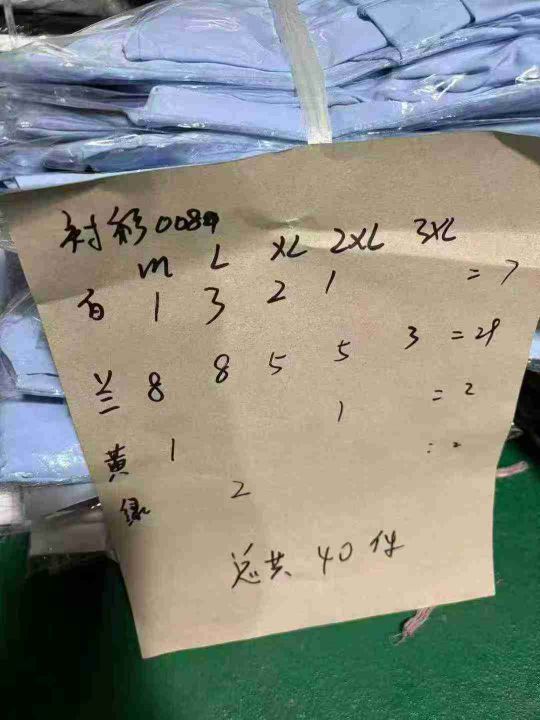 衬衫0084
M L XL 2XL 3XL
白 1 3 2 1 =7
兰 8 8 5 5 3 =29
黄 1 1 =2
绿 2 =2
总共 40件